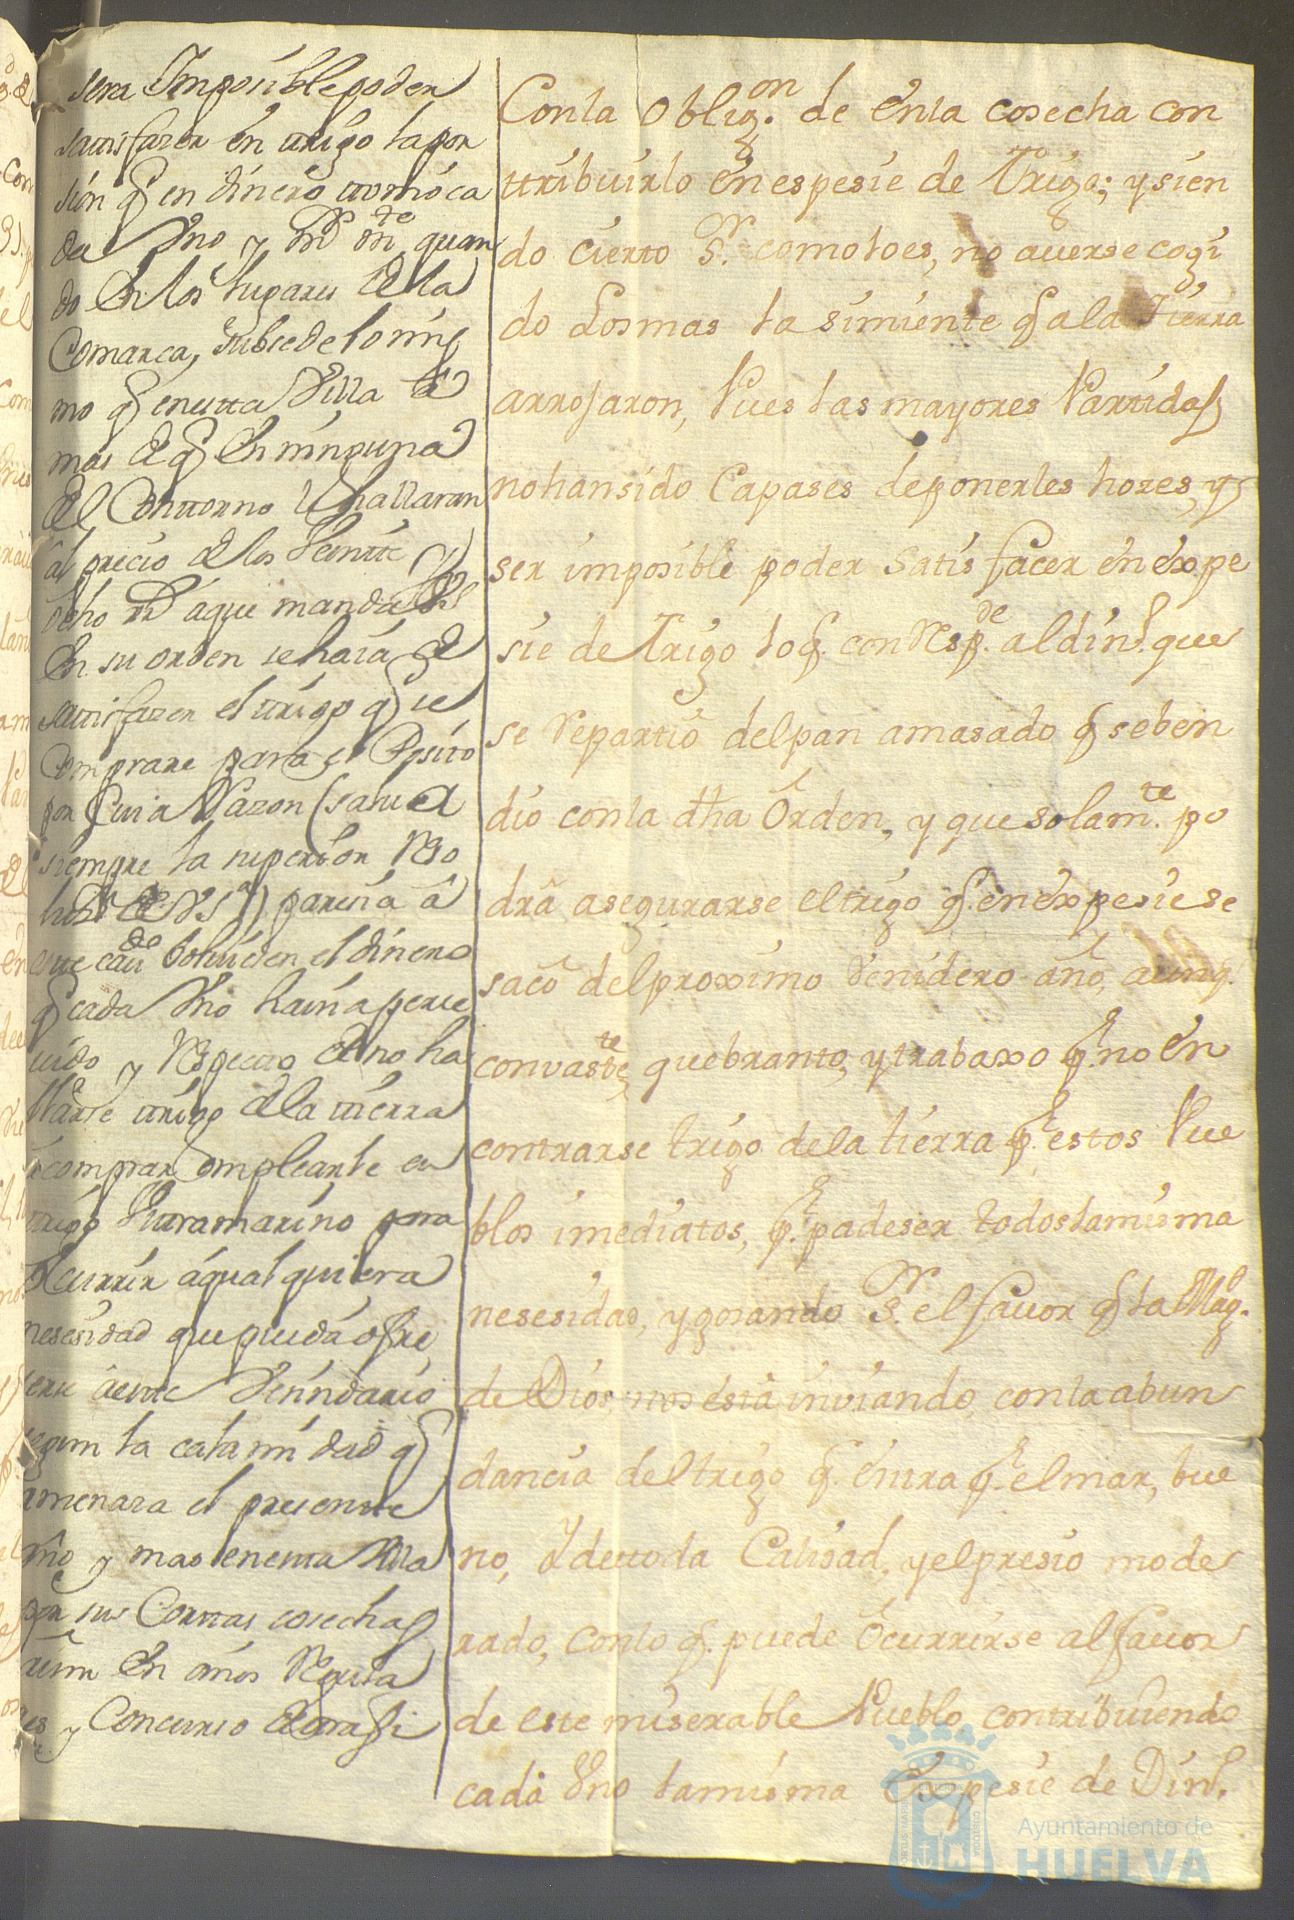 sera Imposible poder
satisfazer en trigo la por
sion q en dinero tomo ca
da Vno y quan
do En los lugares de la
Comarca, subsede lo mis
mo q en esta Villa
mas de q En ninguna
del Contorno le hallaran
al precio de los Veinte y
ocho rr.s a que manda
En su orden se hara de
satisfazer el trigo q se
Comprare para el Posito
por Cuia Razon (salua
siempre la superior Reso
luz.n de VS.a) paresia â
este boluiesen el dinero
q cada Vno hauia perse
uido y Respecto de no ha
llarse trigo de la tierra
â comprar emplearle en
trigo Vltramarino para
Ocurrir á qualquiera
nesesidad que pueda ofre
serse â este Venindario
segun la calamidad q
amenaza el presente
año y mas en esta Villa
por sus Cortas cosechas
aun en años
y Concurso
Con la Oblig.on de en la cosecha con
ttribuirlo en espesie de Trigo; y sien
do cierto S.r como lo es, no auerse cogi
do Los mas la simiente q a la tierra
arrojaron, Pues las mayores Partidas
no han sido Capases de ponerles hozes, y
ser imposible poder Satisfacer en expe
sie de Trigo lo q. con Resp.de al din.o que
se Repartio del pan amasado q se ben
dio con la dha Orden, y que solam.te po
drâ asegurarse el trigo q. en expesie se
sacô del proximo Venidero año, aunq.
con vast.te quebranto, y trabaxo p.r no en
contrarse trigo de la tierra p.r estos Pue
blos imediatos, p.r padeser todos la misma
nesesidad, y gosando S.r el fauor q la Mag.d
de Dios nos está inviando, con la abun
dancia del trigo q. entra p.r el mar, bue
no, y de ttoda Calidad, y el presio mode
rado, con lo q. puede Ocurrirse al fauor
de este miserable Pueblo contribuiendo
cada Vno la misma Expesie de Din.o
Ayuntamiento de
HUELVA